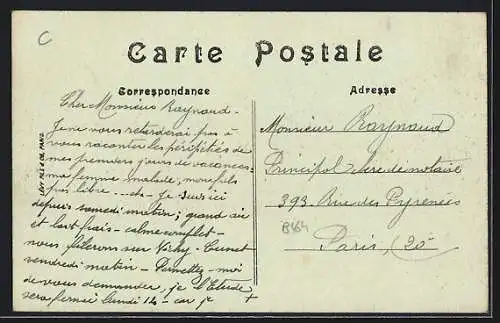 C
Carte Postale
Correspondance
Adresse
Cher Monsieur Raynaud -
Je ne vous retarderai pas à
vous raconter les péripéties de
mes premiers jours de vacances :
ma femme malade, mon fils
pas libre
Je suis ici
depuis samedi matin ; grand air
et lait frais - calme complet -
nous filerons sur Vichy - Cusset
vendredi matin - Permettez-moi
de vous demander, si l'Etude
sera fermée lundi 14 - car je
+
Monsieur Raynaud
Principal clerc de notaire
393 Rue des Pyrénées
B464
Paris, (20e